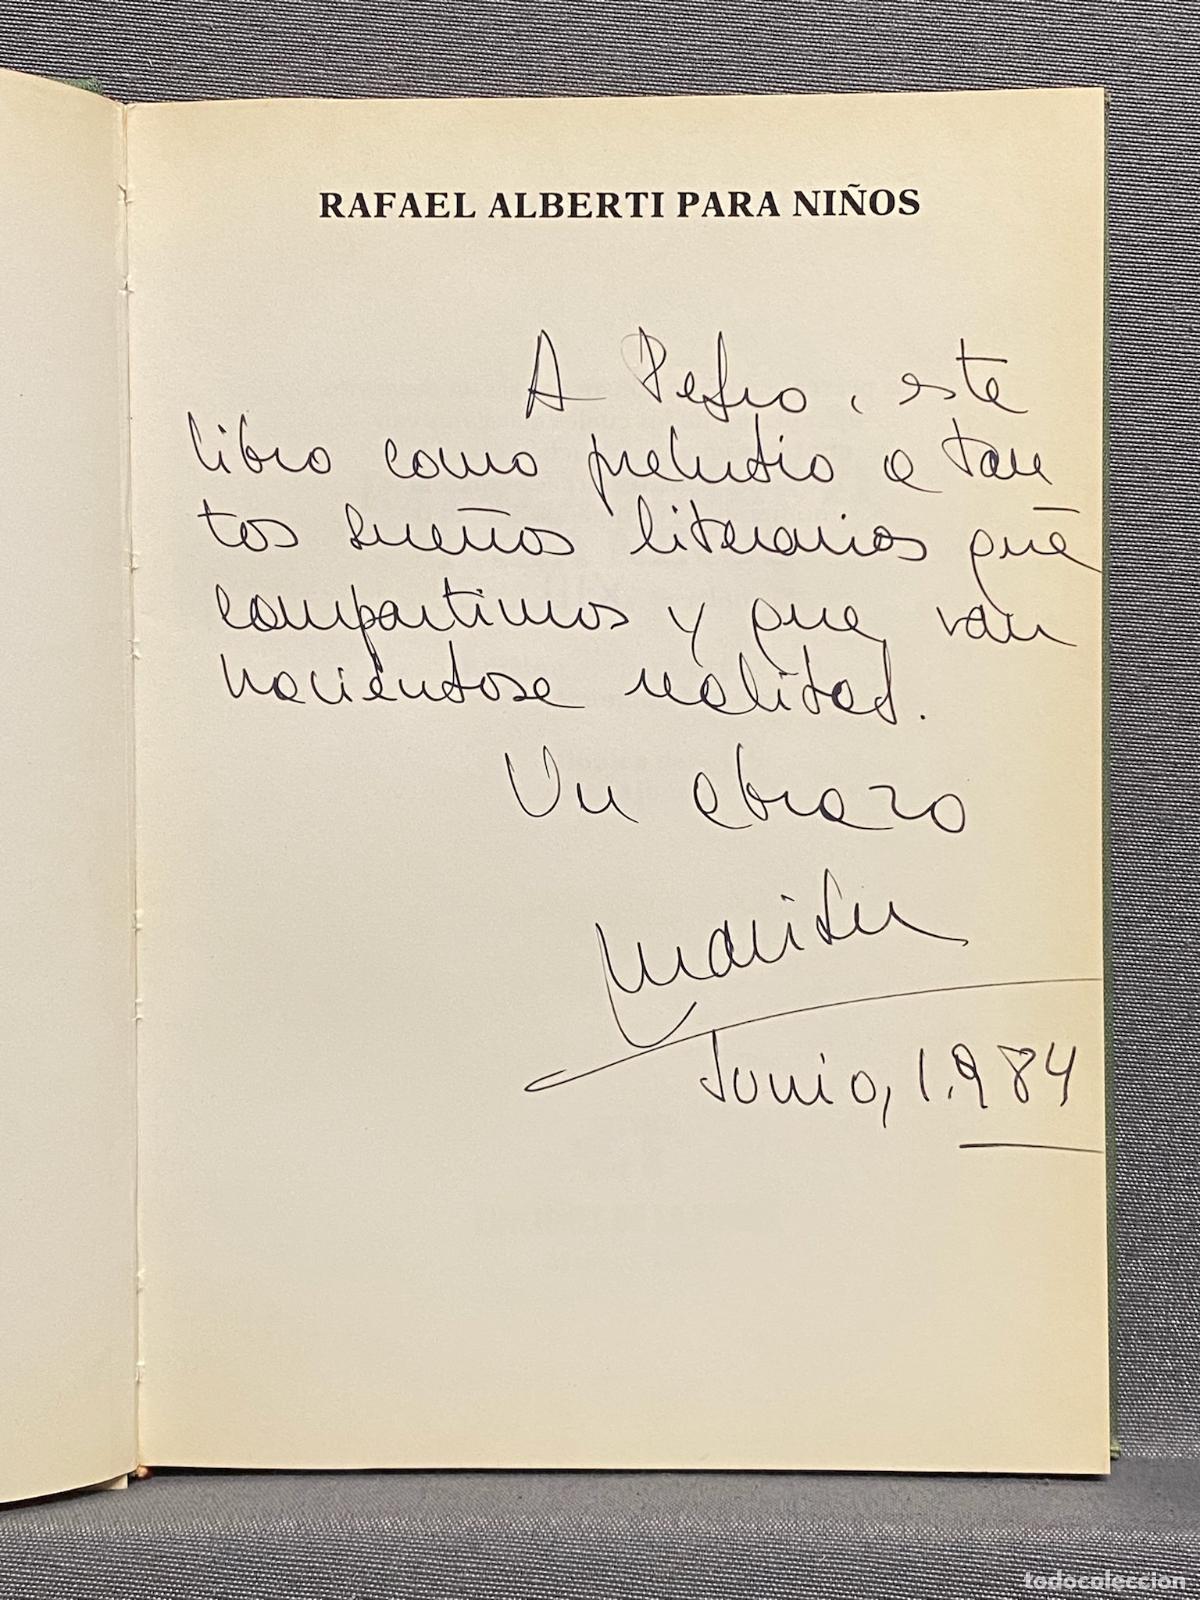 RAFAEL ALBERTI PARA NIÑOS
A Pedro, este
libro como preludio a tan
tos sueños literarios que
compartimos y que van
haciéndose realidad.
Un abrazo
Marisu
Junio, 1.984
todocoleccion